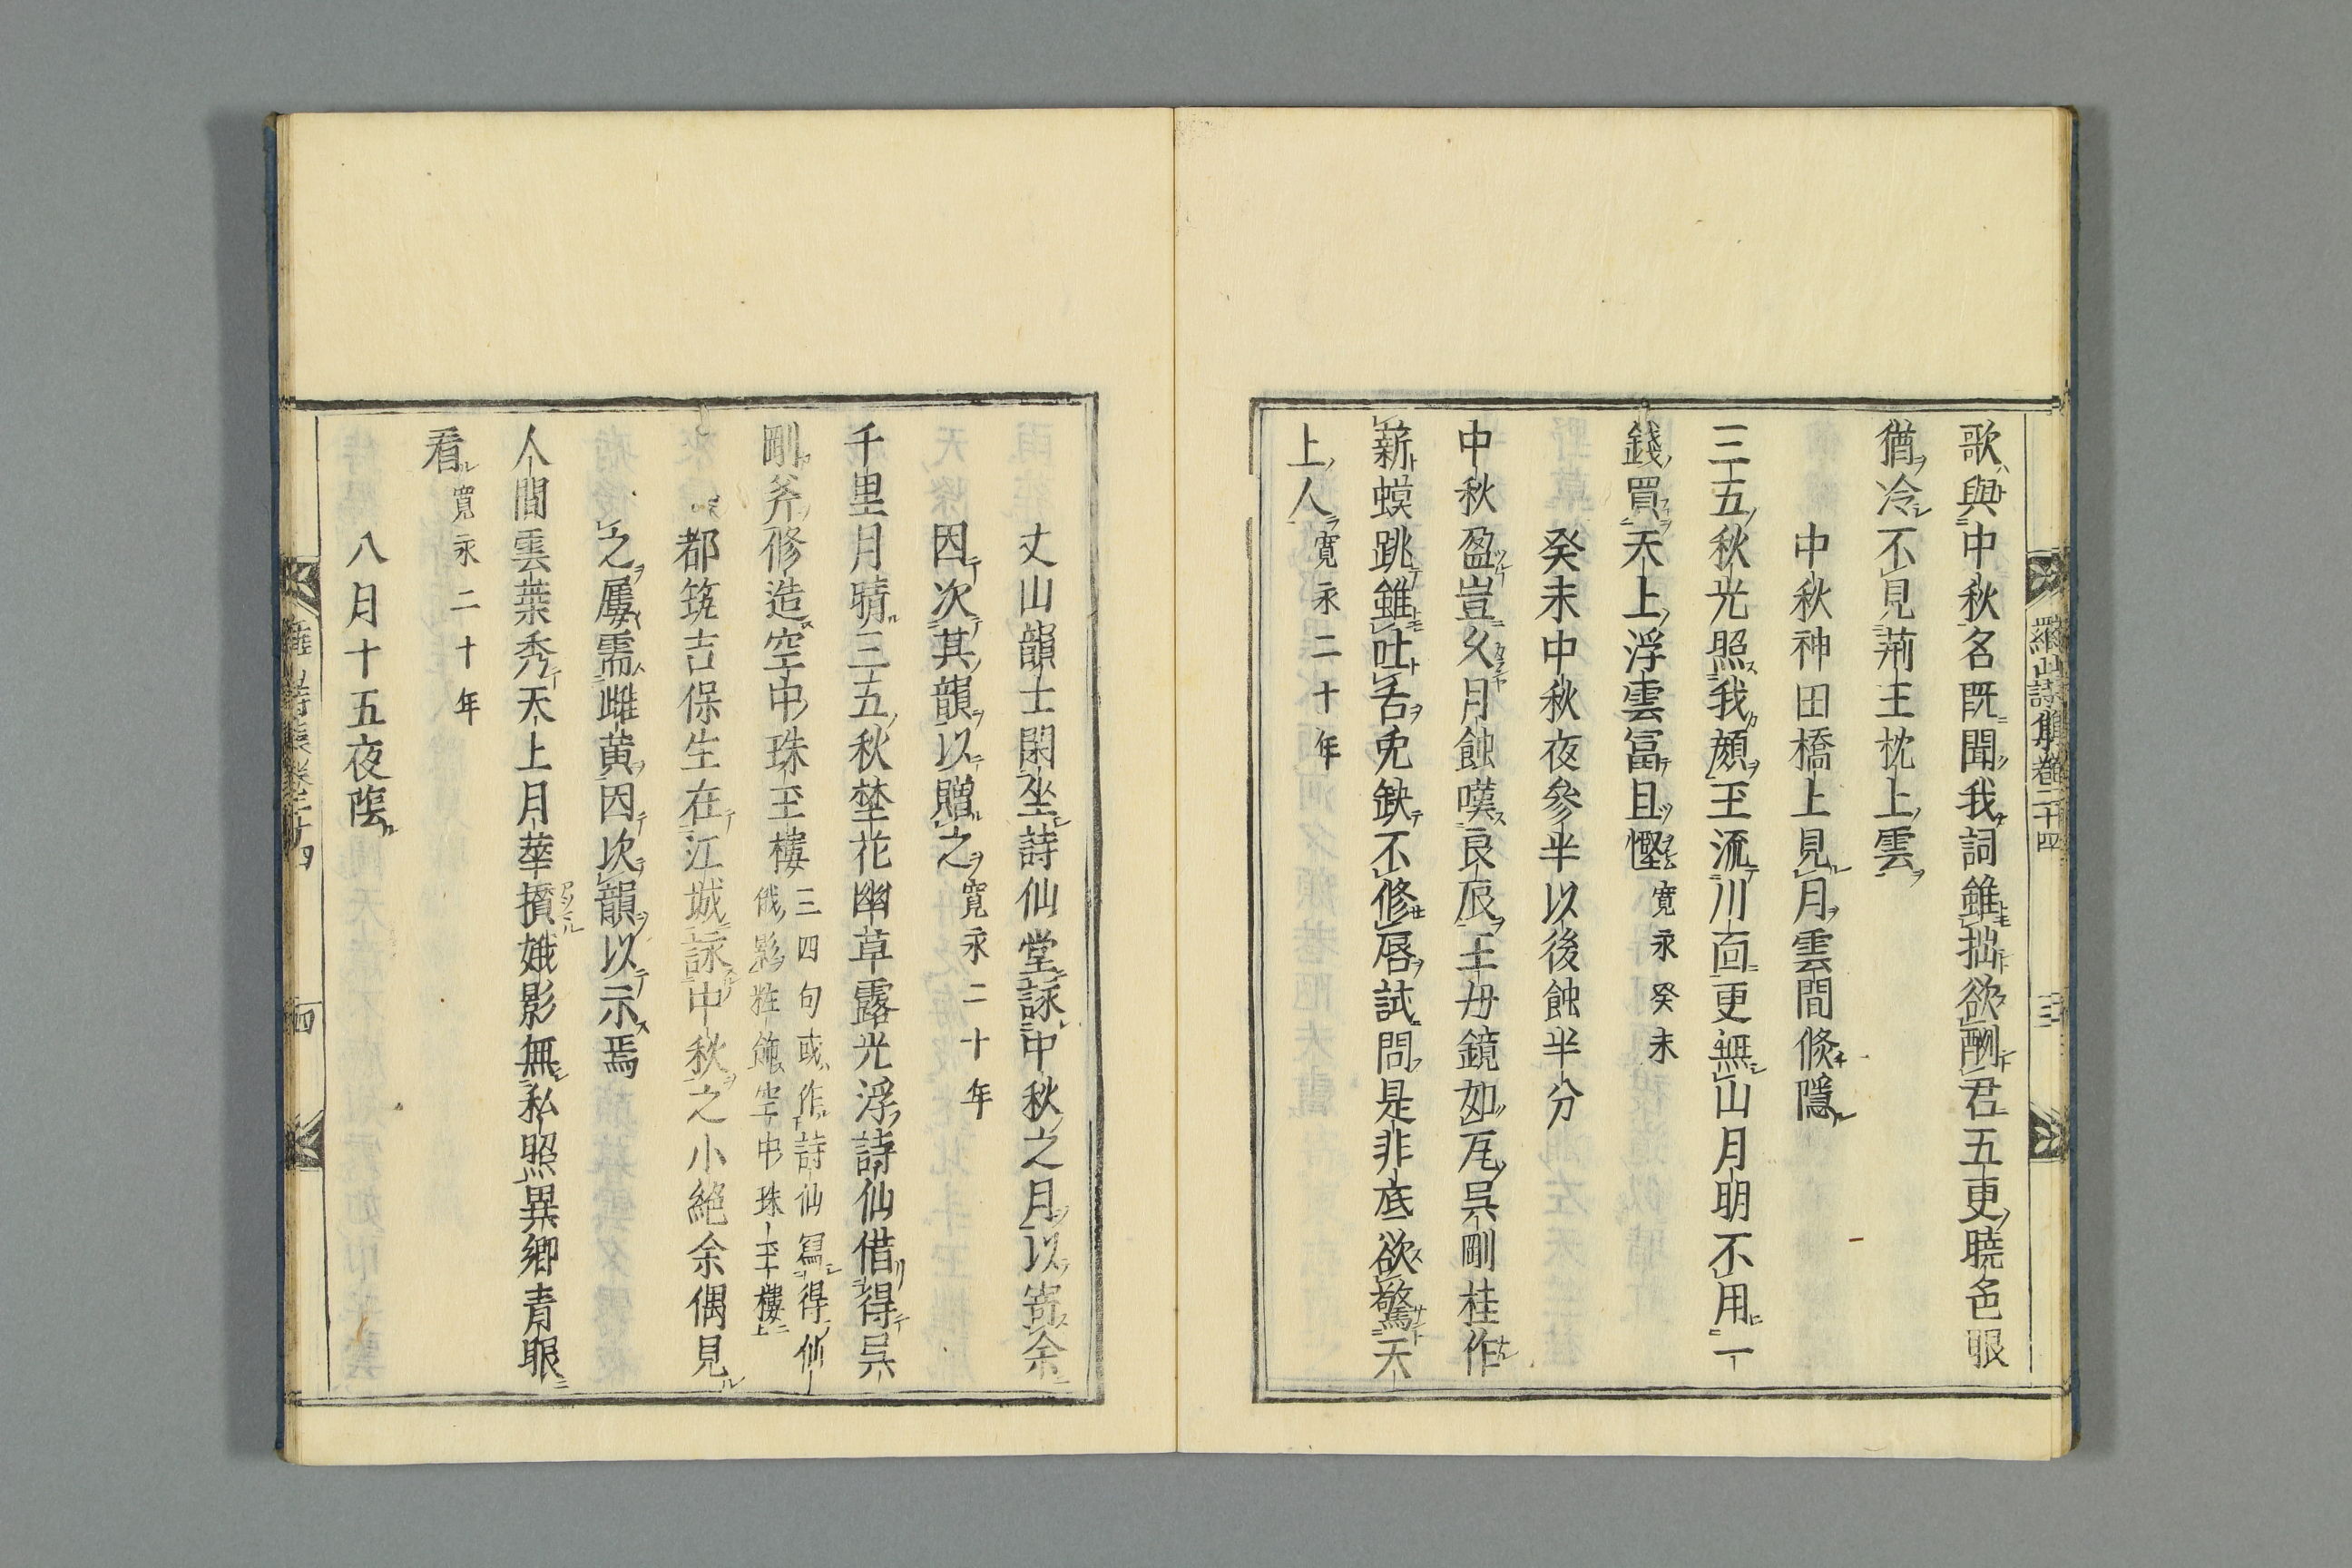 羅山詩集卷三十四
三
歌與中秋名既聞我詞雖拙欲酬君五更曉色眼
猶冷不見荊王枕上雲
中秋神田橋上見月雲間倏隱
三五秋光照我顔玉流川面更無山月明不用一
錢買天上浮雲冨且慳寛永癸未
癸未中秋夜參半以後蝕半分
中秋盈豈久月蝕嘆良辰王母鏡如瓦吳剛桂作
薪蟆跳雖吐舌兎缺不修唇試問是非底欲驚天
上人寛永二十年
丈山韻士閑坐詩仙堂詠中秋之月以寄余
因次其韻以贈之寛永二十年
千里月晴三五秋埜花幽草露光浮詩仙借得吳
剛斧修造空中珠玉樓三四句或作詩仙寫得仙
俄影粧飾空中珠玉樓
都筑吉保生在江城詠中秋之小絕余偶見
之屢需雌黄因次韻以示焉
人間雲葉秀天上月華攢娥影無私照異鄕青眼
看寛永二十年
八月十五夜陰
羅山詩集卷三十四
四